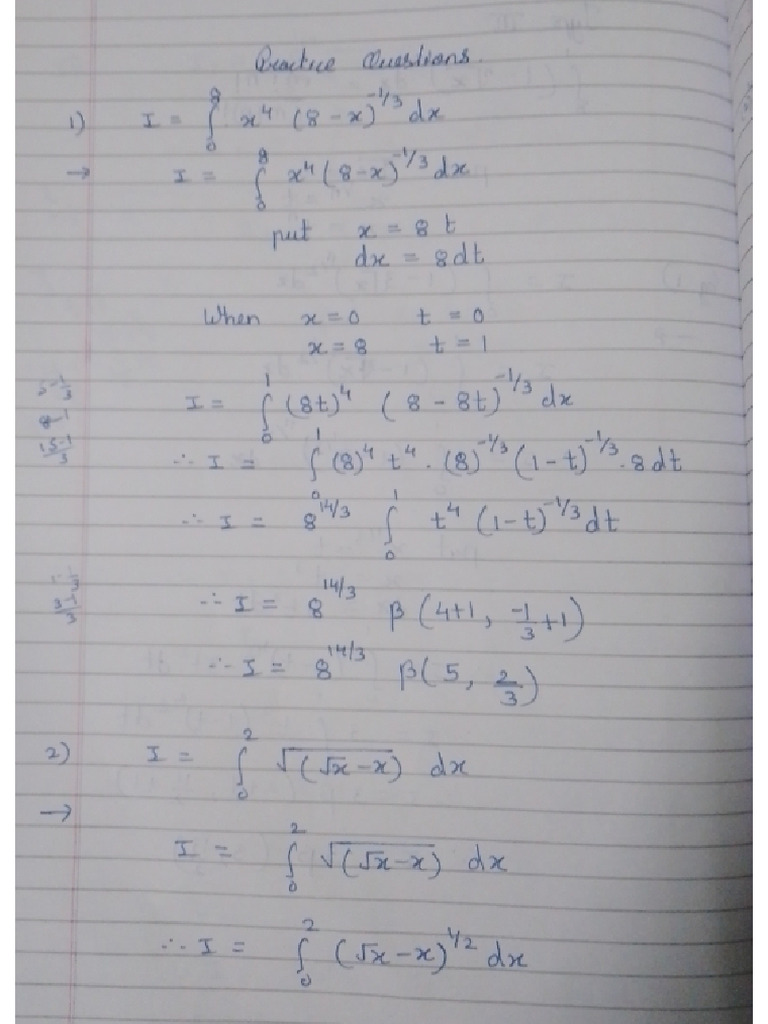 Practice Questions.
1) I = ∫₀⁸ x⁴ (8 - x)^(-1/3) dx
→ I = ∫₀⁸ x⁴ (8-x)^(-1/3) dx
put x = 8 t
dx = 8 dt
When x = 0 t = 0
x = 8 t = 1
I = ∫₀¹ (8t)⁴ (8 - 8t)^(-1/3) dx
∴ I = ∫₀¹ (8)⁴ t⁴ · (8)^(-1/3) (1-t)^(-1/3) · 8 dt
∴ I = 8^(14/3) ∫₀¹ t⁴ (1-t)^(-1/3) dt
∴ I = 8^(14/3) β (4+1, -1/3 +1)
∴ I = 8^(14/3) β(5, 2/3)
2) I = ∫₀² √(√x - x) dx
→
I = ∫₀² √(√x - x) dx
∴ I = ∫₀² (√x - x)^(1/2) dx